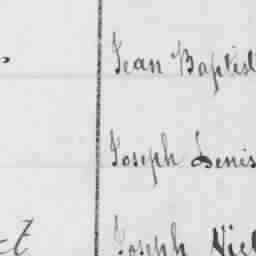 Jean Baptist
Joseph Denis
Joseph Nic